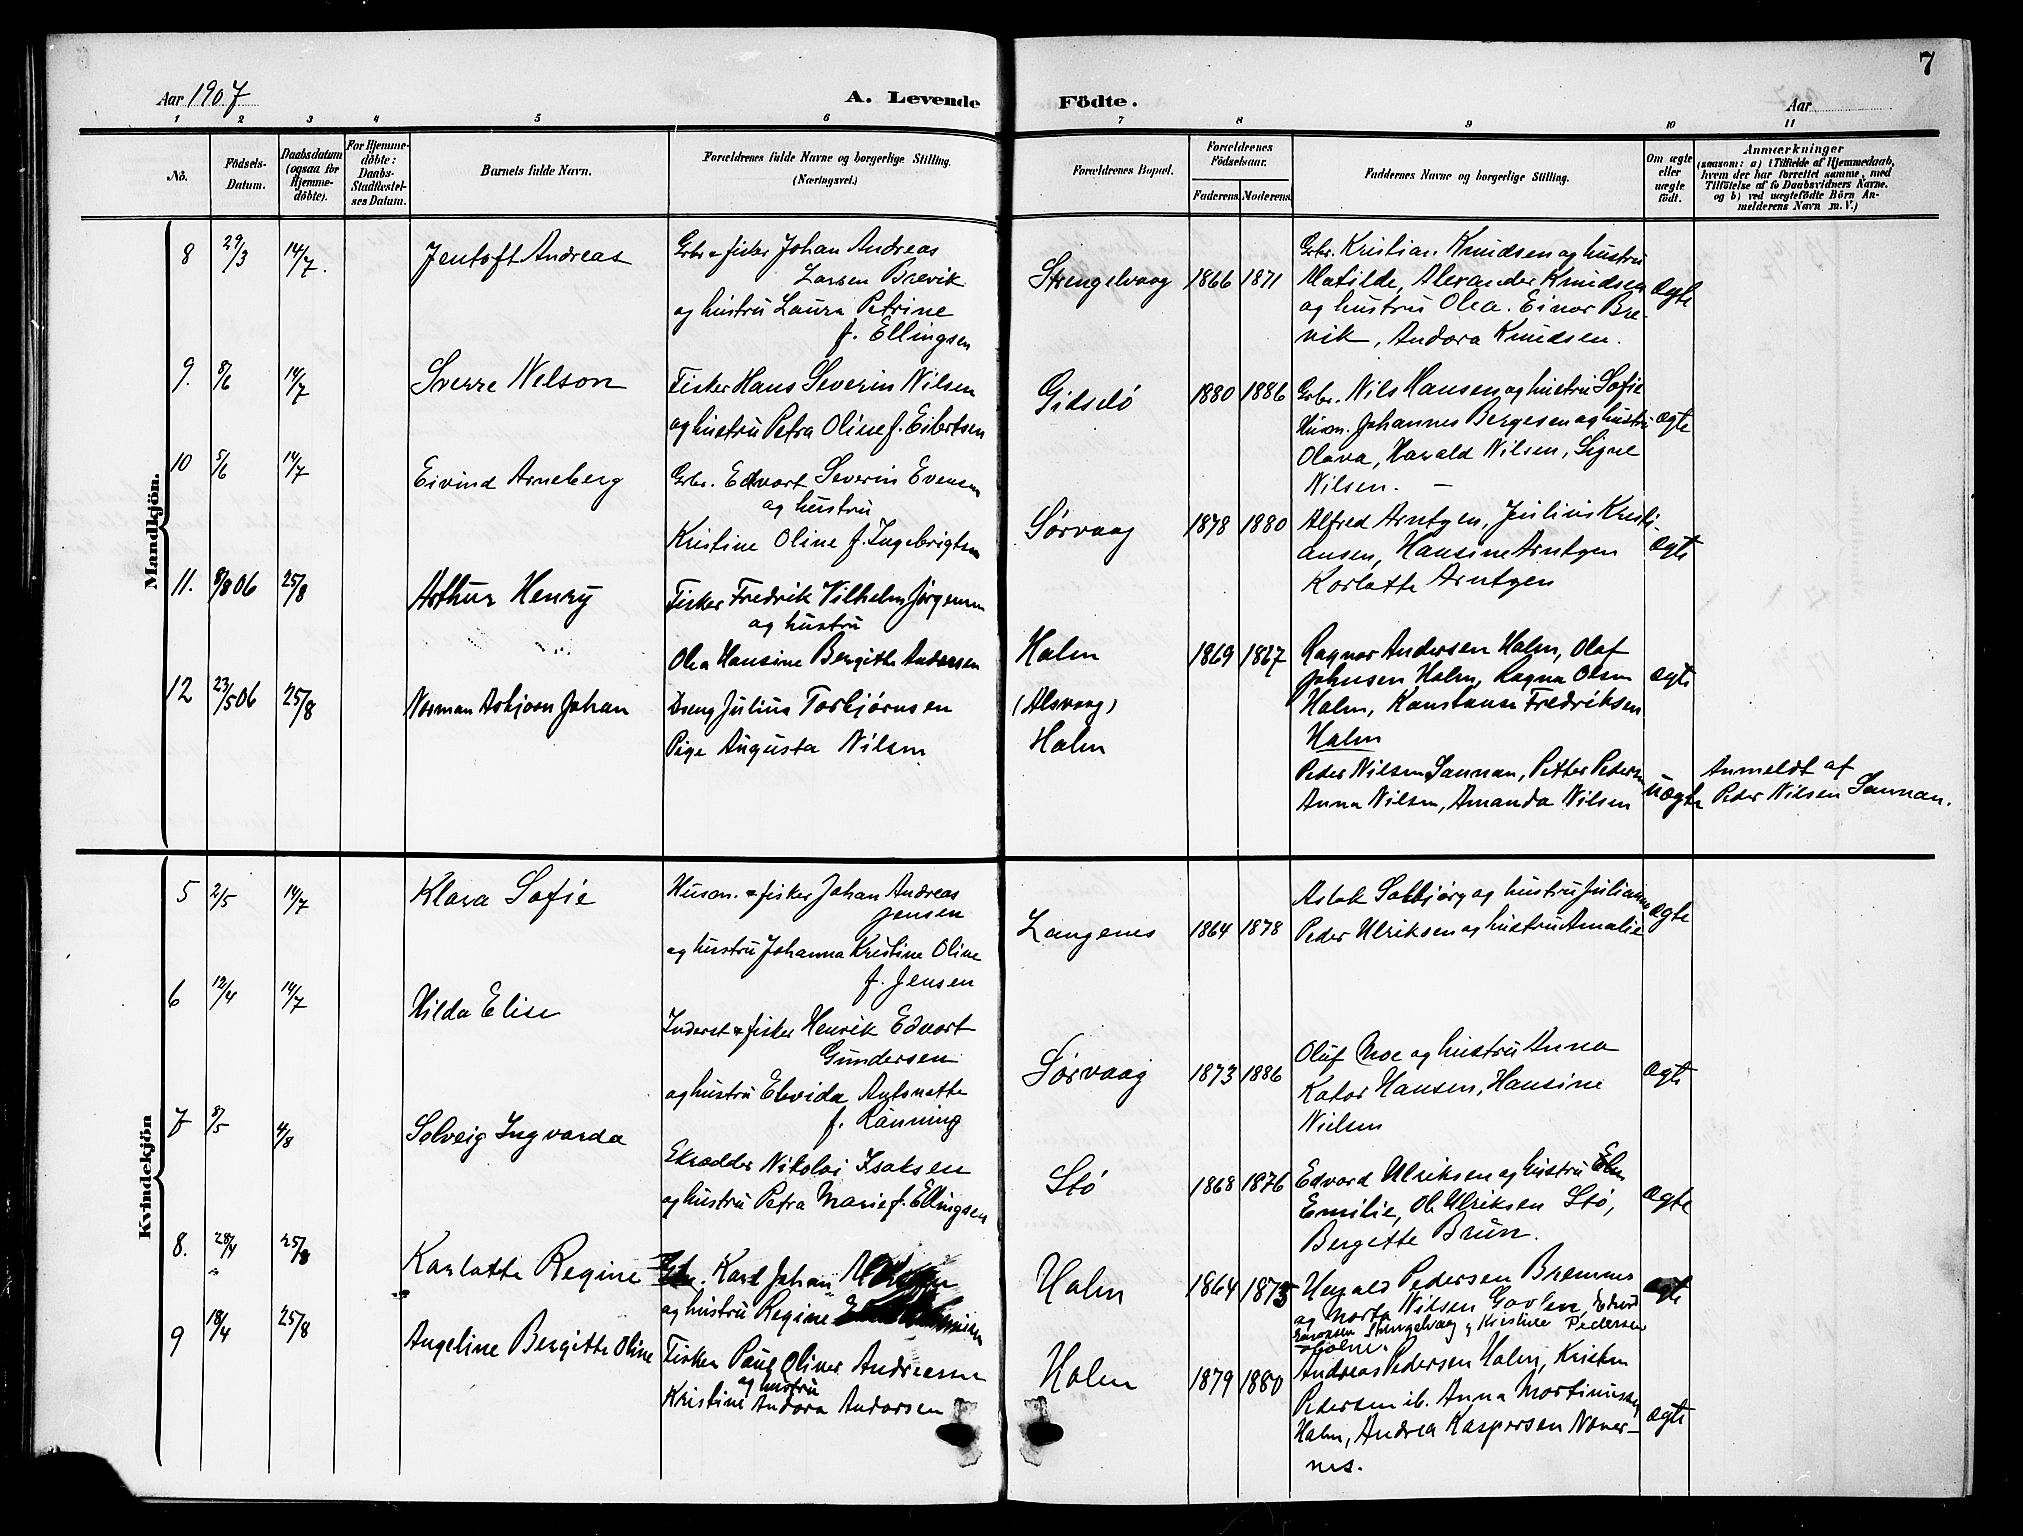 7
Aar 1907
A. Levende
Födte.
Aar
1 2 3 4 5 6 7 8 9 10 11
No.
Födsels-
Datum.
Daabsdatum
(ogsaa for
Hjemme-
döbte).
For Hjemme-
döbte:
Daabs-
Stadfæstel-
ses Datum.
Barnets fulde Navn.
Forældrenes fulde Navne og borgerlige Stilling.
(Næringsvei.)
Forældrenes Bopæl.
Forældrenes
Födselsaar.
Faderens.
Moderens.
Faddernes Navne og borgerlige Stilling.
Om ægte
eller
uægte
födt.
Anmærkninger
(saasom: a) i Tilfælde af Hjemmedaab,
hvem der har forrettet samme, med
Tilföielse af to Daabsvidners Navne,
og b) ved uægtefödte Börn An-
melderens Navn m. V.)
Mandkjön.
8 29/3 14/7. Jentoft Andreas
Gbr & fisker Johan Andreas
Larsen Brevik
og hustru Laura Petrine
f. Ellingsen
Strengelvaag 1866 1871
Gbr. Kristian Knudsen og hustru
Matilde, Alexander Knudsen
og hustru Olea. Einar Bre-
vik, Andora Knudsen.
ægte
9. 8/6 14/7 Sverre Nelson
Fisker Hans Severin Nilsen
og hustru Petra Oline f. Eibertsen
Gidslö 1880 1886
Gbr. Nils Hansen og hustru Sofie
Husm. Johannes Bergesen og hustru
Olava, Harald Nilsen, Signe
Nilsen. —
ægte
10 5/6 14/7 Eivind Arneberg
Gbr. Edvart Severin Evensen
og hustru
Kristine Oline f. Ingebrigtsen
Sørvaag 1878 1880
Alfred Arntzen, Julius Kristi-
ansen, Hansine Arntzen
Karlotte Arntzen
ægte
11. 8/8 06 25/8 Arthur Henry
Fisker Fredrik Vilhelm Jørgensen
og hustru
Olea Hansine Bergitte Andersen
Holm 1869 1867
Ragnar Andersen Holm, Olaf
Johnsen Holm, Ragna Olsen
Holm, Konstanse Fredriksen
Holm
ægte
12 23/5 06 25/8 Norman Asbjørn Johan
Dreng Julius Torbjørnsen
Pige Augusta Nilsen
(Alsvaag)
Holm
Peder Nilsen Sannan, Petter Pedersen
Anna Nilsen, Amanda Nilsen
uægte
Anmeldt af
Peder Nilsen Sannan.
Kvindekjön
5 2/5 14/7 Klara Sofie
Husm. & fisker Johan Andreas
Jensen
og hustru Johanna Kristine Oline
f. Jensen
Langenes 1864 1878
Aslak Solbjørg og hustru Julianne
Peder Ulriksen og hustru Amalie
ægte
6 12/4 14/7 Hilda Elise
Inderst & fisker Henrik Edvart
Gundersen
og hustru Elvida Antonette
f. Rønning
Sørvaag 1873 1886
Oluf Moe og hustru Anna
Kator Hansen, Hansine
Nielsen
ægte
7 8/5 4/8 Solveig Ingvarda
Skrædder Nikolai Isaksen
og hustru Petra Marie f. Ellingsen
Stø 1868 1876
Edvard Ulriksen og hustru
Emilie, Ole Ulriksen Stø,
Bergitte Brun.
ægte
8. 28/4 25/8 Karlotte Regine
Karl Johan
og hustru Regine
Holm 1864 1873
Pedersen Bremnes
og Marta Nilsen Gavlen, Edvard
Strengelvaag & Kristine Pedersen
Holm.
ægte
9 18/4 25/8 Angeline Bergitte Oline
Fisker Paul Oliver Andreassen
og hustru
Kristine Andora Andorsen
Holm 1879 1880
Andreas Pedersen Holm, Kristen
Pedersen ib. Anna Mortinussen,
Holm, Andrea Kaspersen Naver-
nes.
ægte